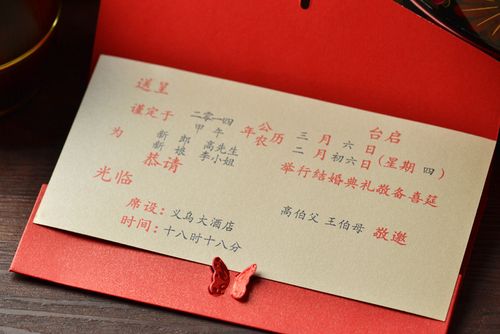 送呈 台启
谨定于 二零一四 年 公历 三 月 六 日
甲 午 农历 二 月 初六 日 (星期 四)
为 新 郎 高先生
新 娘 李小姐 举行结婚典礼敬备喜筵
恭请
光临 高伯父 王伯母 敬邀
席设：义乌大酒店
时间：十八时十八分